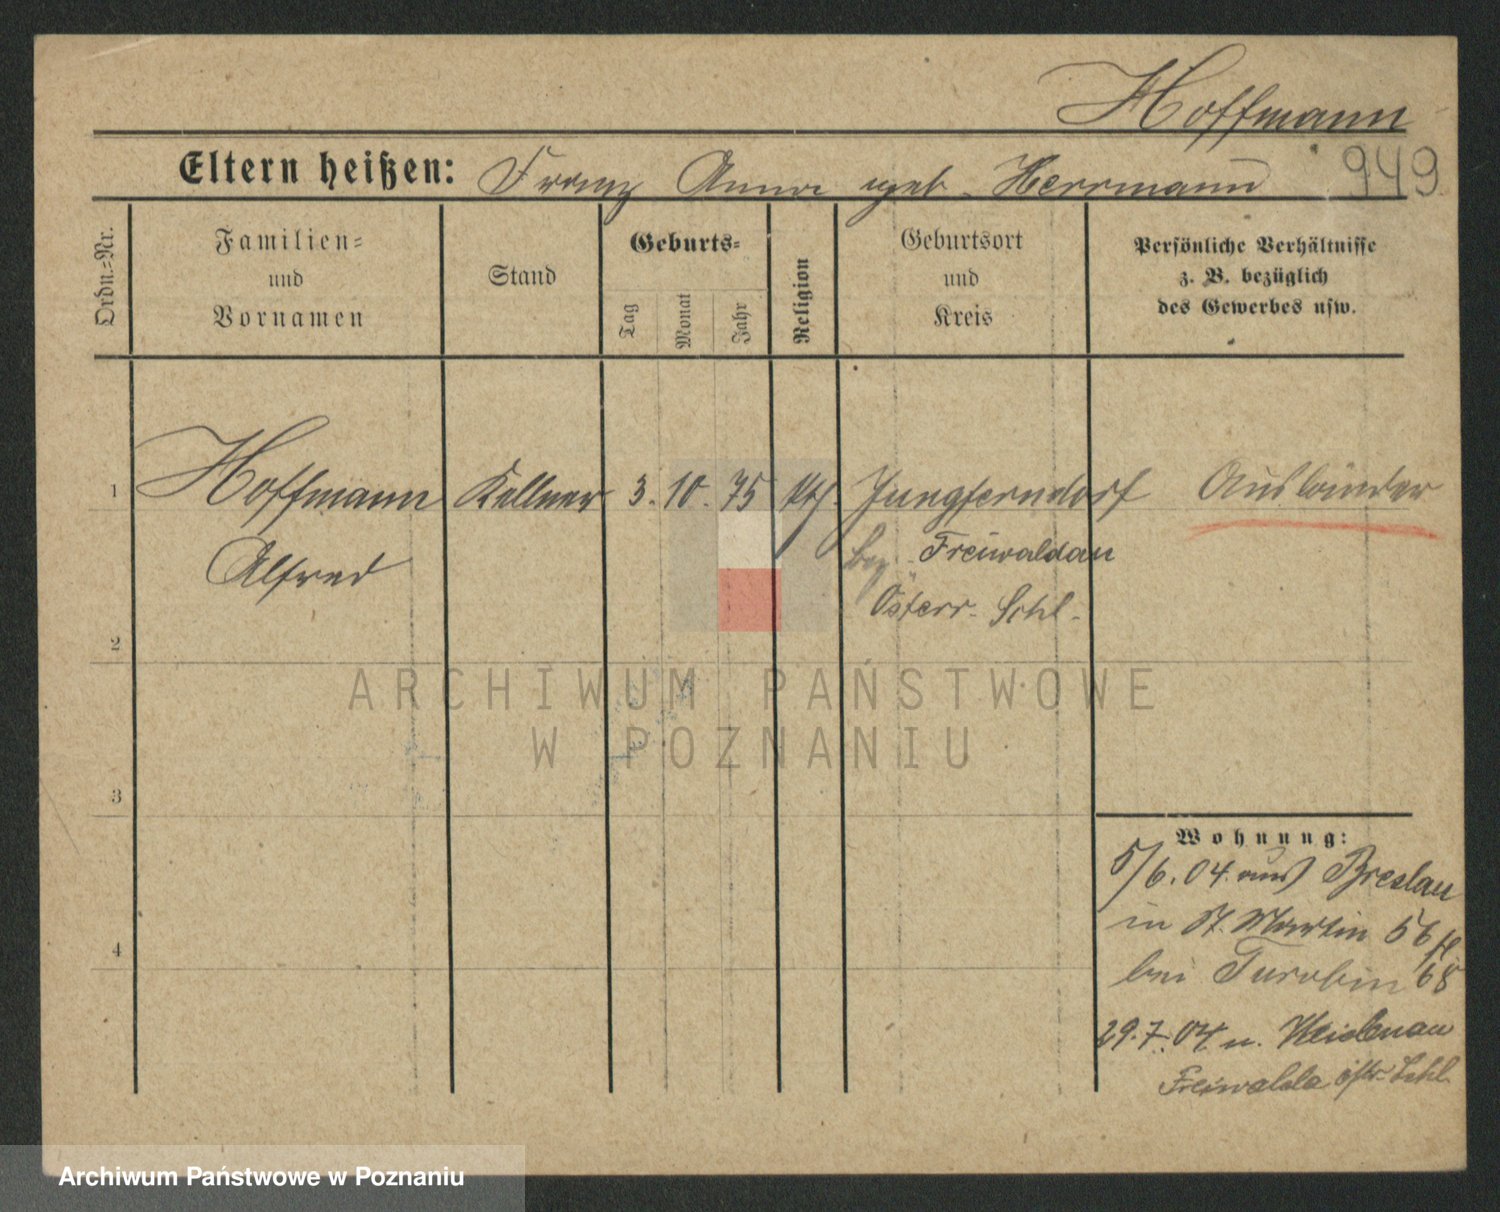 Hoffmann
Eltern heißen: Franz Anna geb. Herrmann 949
Ordn.-Nr.
Familien-
und
Vornamen
Stand
Geburts-
Tag
Monat
Jahr
Religion
Geburtsort
und
Kreis
Persönliche Verhältnisse
z. B. bezüglich
des Gewerbes usw.
1 Hoffmann Kellner 3. 10. 75 kth. Jungferndorf Ausländer
Alfred bez. Freiwaldau
Österr. Schl.
2
3
4
Wohnung:
5/6. 04. aus Breslau
in St. Martin 56
bei Turobin 68
29.7.04 n. Weidenau
Freiwalda östr. Schl.
ARCHIWUM PAŃSTWOWE
W POZNANIU
Archiwum Państwowe w Poznaniu